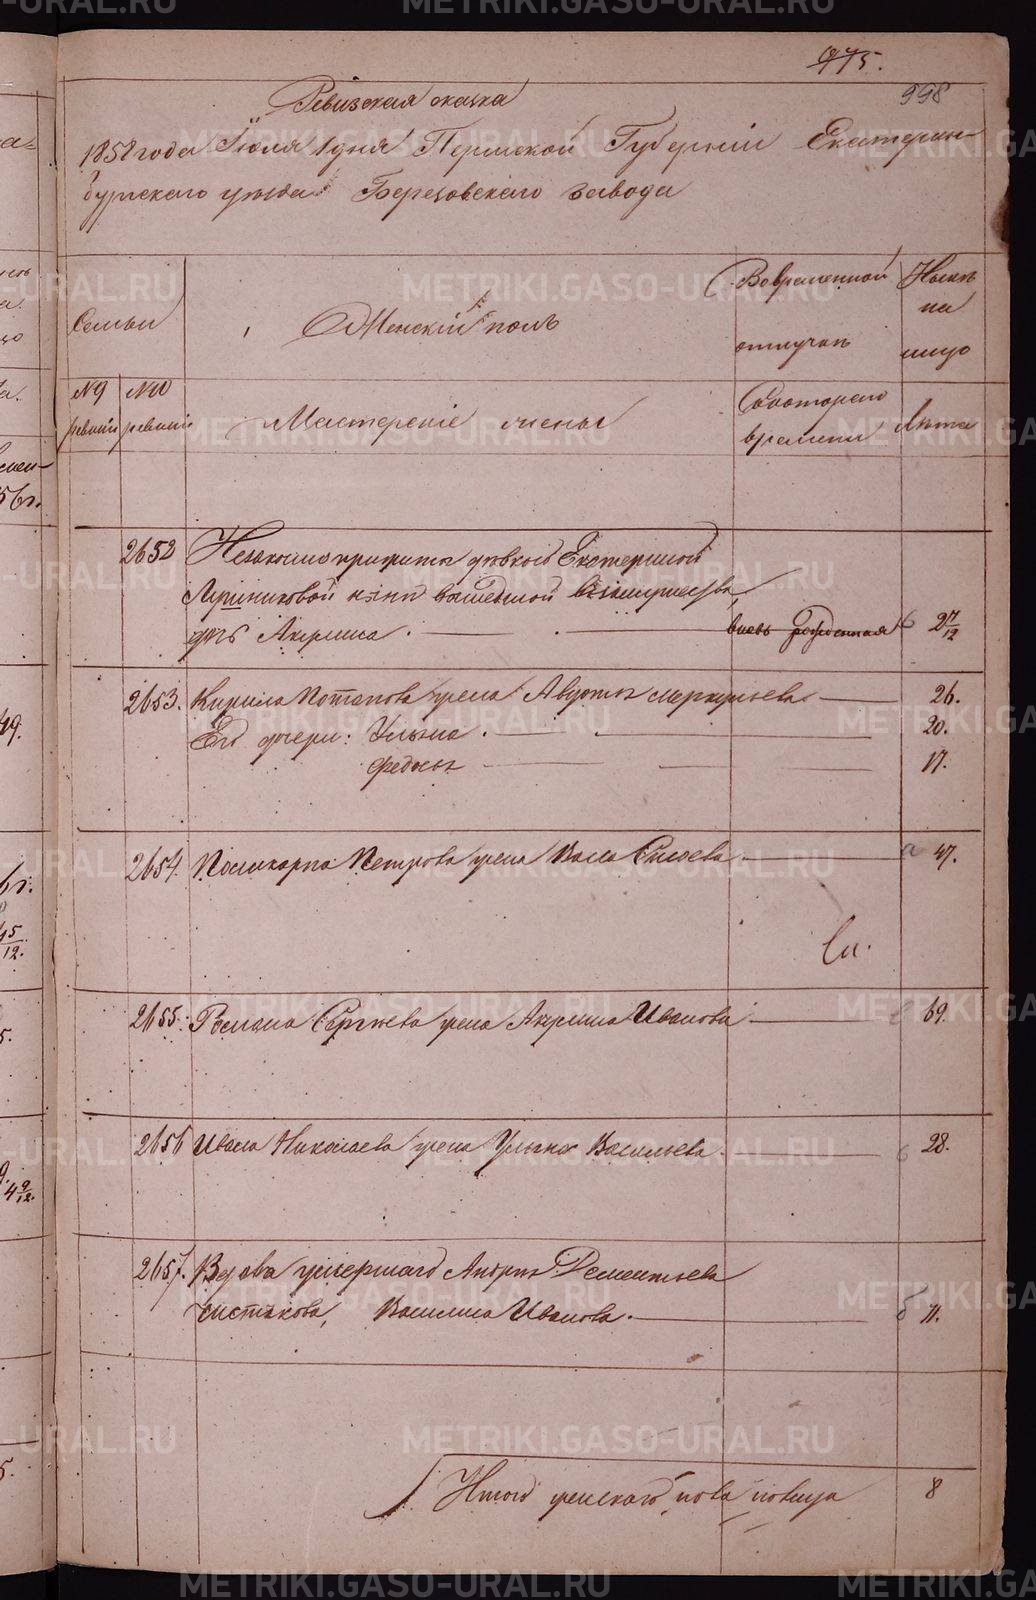 975.
998
Ревизская сказка
1858 года Июля 1 дня Пермской Губернии Екатерин-
бургского уезда Березовского завода
Семьи
Женский полъ
Во временной отлучке
Ныне на лицо
№ 9 ревизии
№ 10 ревизии
Мастерские жены
Съ котораго времени
Лета
2652 Незаконноприжита девкой Екатериной
вышедшей в замужества,
дочь Акулина. вновь рожденная 6 2 7/12
2653. Кирила Потапова жена Авдотья Меркурьева 26.
Его дочери: Ульяна 20.
Федосья 17.
2654. Поликарпа Петрова жена Васса Сысоева а 47.
2655. Романа Сергеева жена Акулина Иванова 69.
2656 Ивана Николаева жена Ульяна Васильева 6 28.
2657. Вдова умершаго Андрея Дементьева
Чистякова, Василиса Иванова. б 71.
Итого женскаго пола налицо 8
METRIKI.GASO-URAL.RU